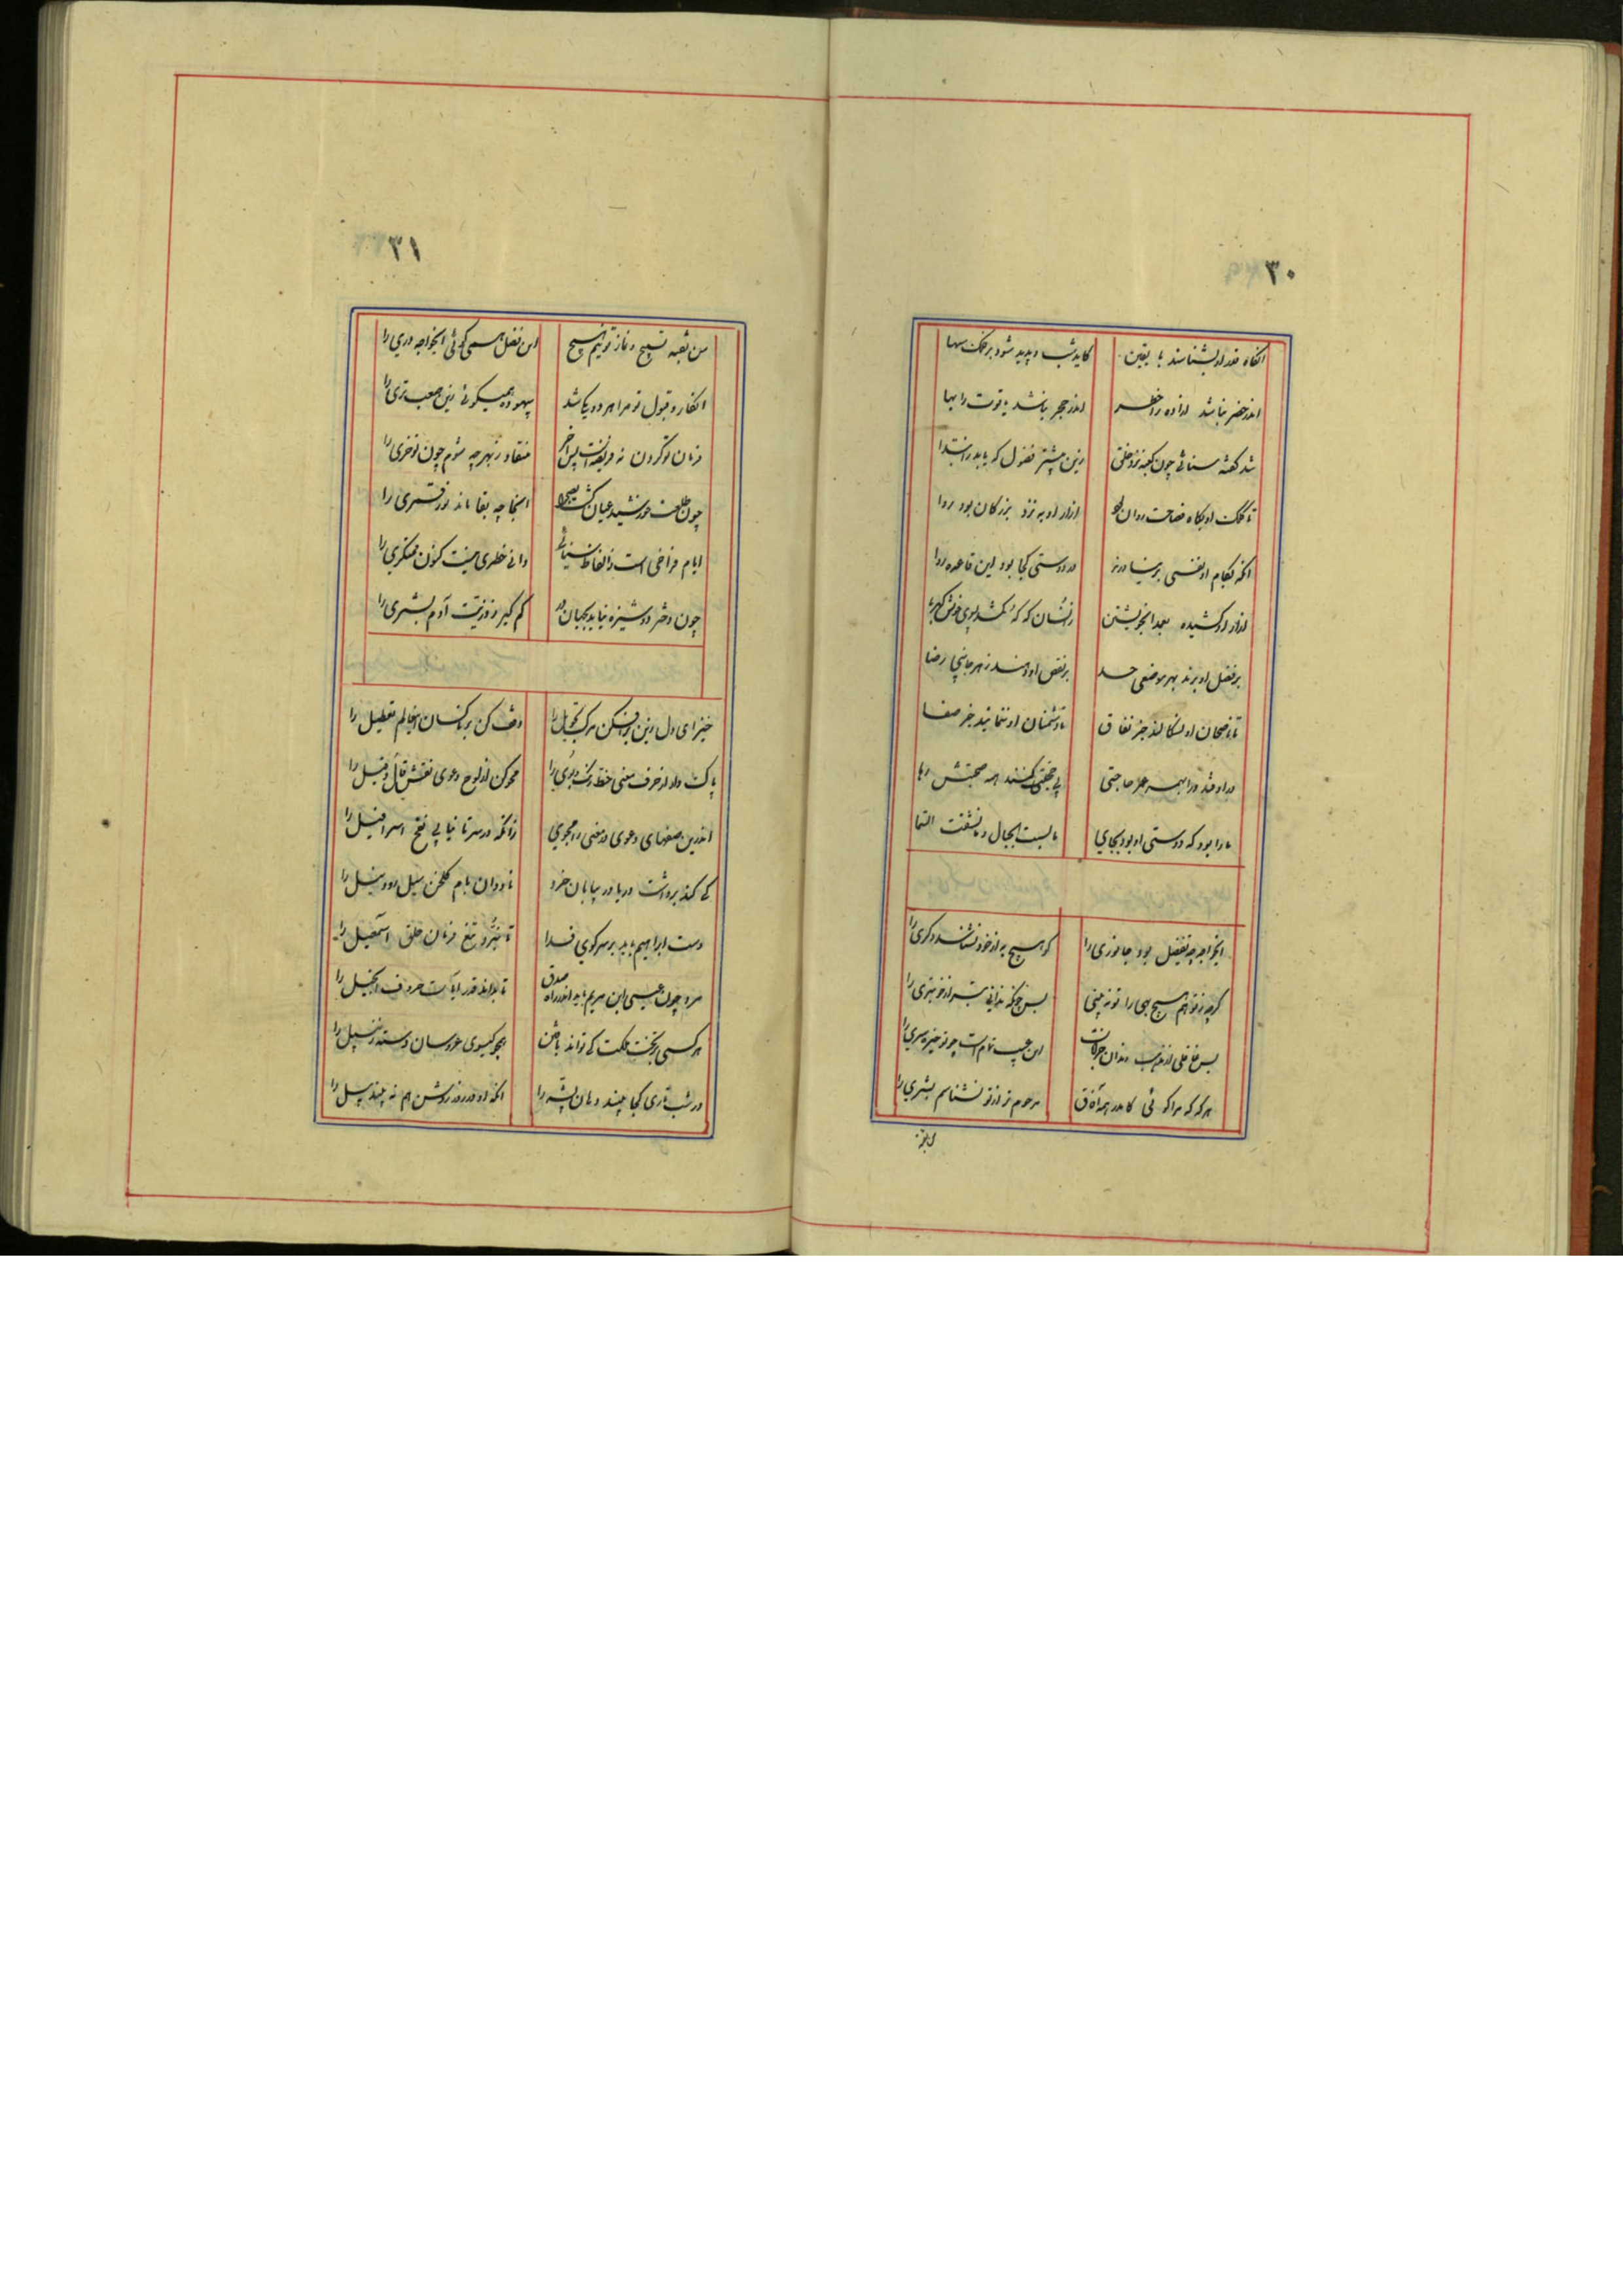 ۳۰
آنگاه قدر او بشناسند با یقین کاید شب و پدید شود بر فلک سها
اندر حضر نباشد آزاده را خطر اندر حجر نباشد یاقوت را بها
شد گفته سنائی چون کعبه نزد خلق زین بیشتر فضول که یابد ز ابتدا
تا کلک او بگاه فصاحت روان بود آزار او به نزد بزرگان بود روا
آنکه بکام او نفسی بر نیاورند در دوستی کجا بود این قاعده روا
آزار او کشیده بعمدا بخویشتن زینسان که که کشد بسوی خویش کهربا
بر فضل او برند بهر موضعی حسد بر نقص او دهند ز هر جانبی رضا
با ناصحان او نسگالند جز نفاق با دشمنان او ننمایند جز صفا
در اوفتد ورا بهمه عمر حاجتی بی حجتی کنند همه صحبتش رها
ما را بود که دوستی او بود بجای بالیت الجبال و بالشقت السما
ایخواجه چه تفضیل بود جانوری را کو هیچ به از خود نشناسد دگری را
گرچه ز تو هم هیچ بهی را تو نه بینی بس چونکه ندانی بتر از خود بتری را
بس غافلی از مذهب رندان خرابات این عیب تمام است چو تو خیره سری را
هر که که مرا گوئی کاندر همه آفاق مرحوم تر از تو نشناسم بشری را
۳۱
من بقعه تسبیح و نماز تو نیم هیچ این فضل همی گوئی ایخواجه دری را
انکار و قبول تو مرا هر دو یکی شد بیهوده همیگوئی زین صعب تری را
فرمان تو کردن نه فریضه است پس آخر منقاد ز بهر چه شوم چون تو خری را
چون طلعت خورشید عیان گشت بصحرا آنجا چه بقا ماند نور قمری را
ایام فراخی است ز الفاظ سنائی دانی خطری نیست کنون منکری را
چون دختر دوشیزه نیاید بجهان در کم گیر ز ذریت آدم بشری را
خیز ای دل زین برافکن مرکب تحویل را وقف کن بر ناکسان این عالم تعطیل را
پاک دار از حرف معنی خط رنگ و بوی را محو کن از لوح دعوی نقش قال و قیل را
اندرین صفهای دعوی در معنی را مجوی زانکه در سر تا نیابی نفخ اسرافیل را
کی کند برداشت دریا در بیابان خرد ناودان بام گلخن سیل رود نیل را
دست ابراهیم باید بر سر کوی فدا تا نبرد تیغ فرمان حلق اسمعیل را
مرد چون عیسی ابن مریم باید اندر راه صدق تا بداند قدر آیات حروف انجیل را
هر کسی بر تخت حکمت کی تواند باختن همچو گیسوی عروسان دسته زنبیل را
در شب تاری کجا بیند دهان پشه را آنکه او در روز روشن هم نه بیند پیل را